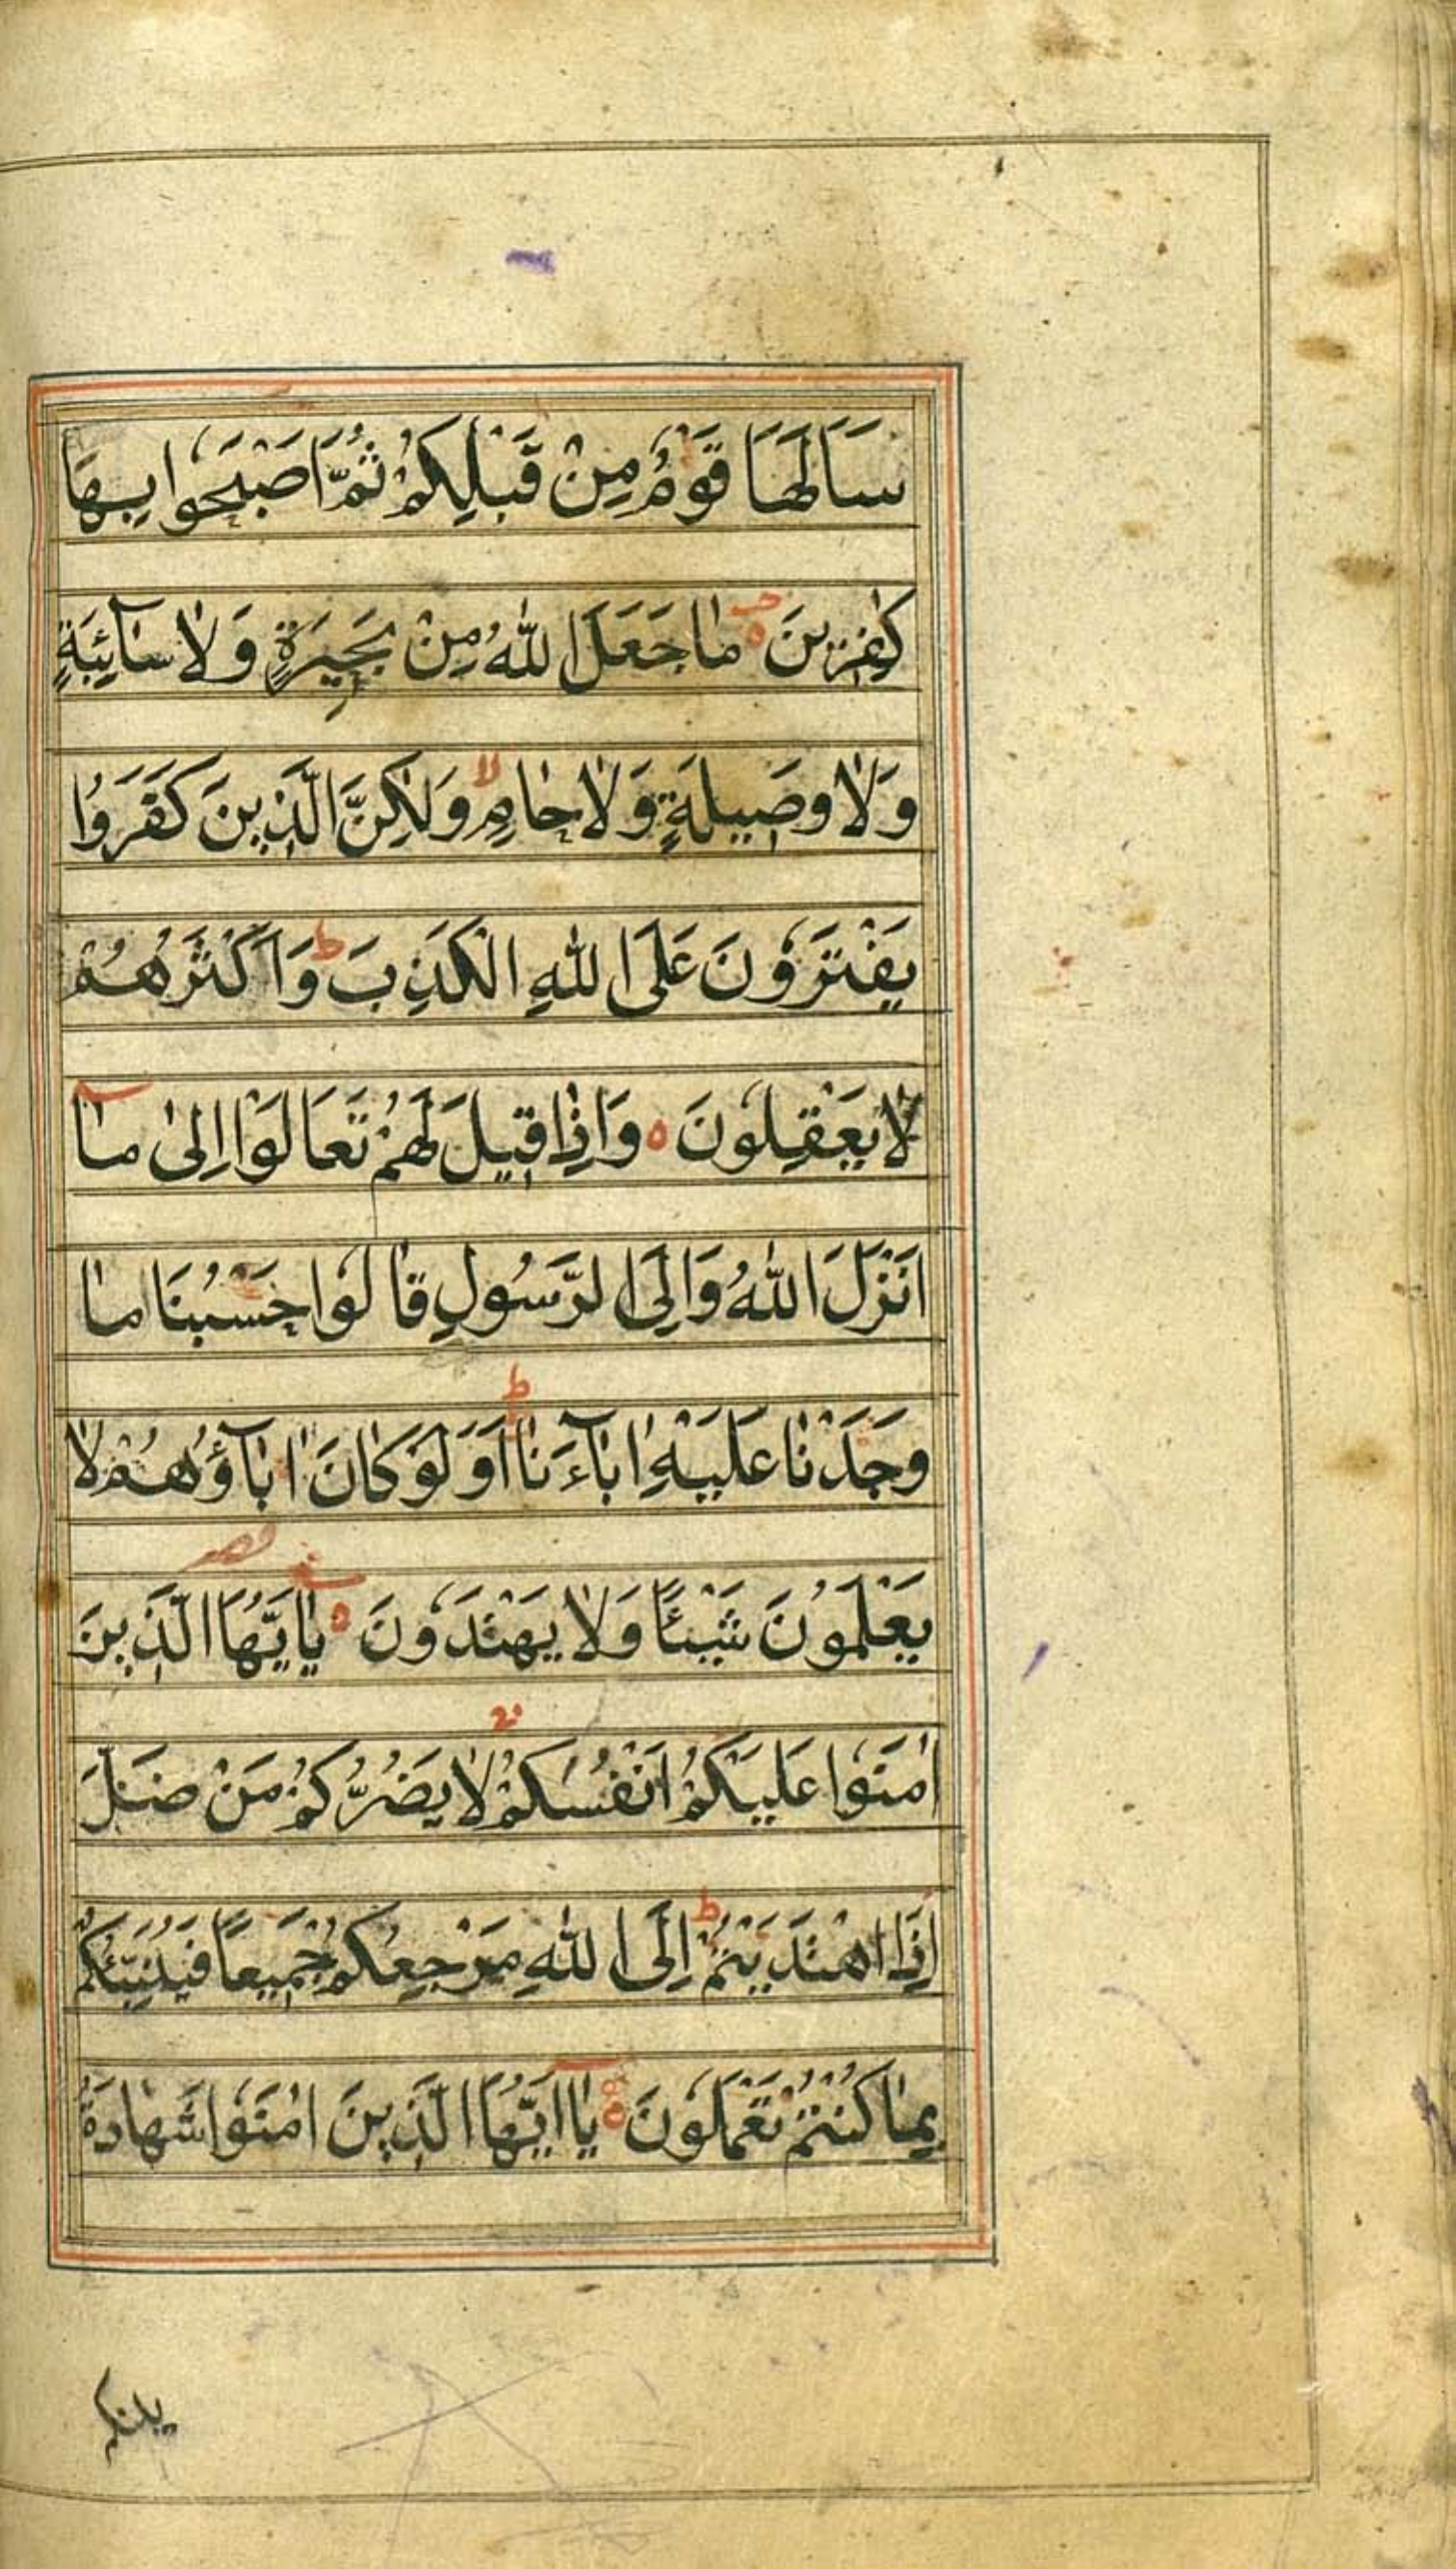 سَاَلَهَا قَوْمٌ مِنْ قَبْلِكُمْ ثُمَّ اَصْبَحُوا بِهَا
كٰفِرِينَ ۵ مٰا جَعَلَ اللّٰهُ مِنْ بَحِيرَةٍ وَلٰا سٰآئِبَةٍ
وَلٰا وَصِيلَةٍ وَلٰا حٰامٍ لا وَلٰكِنَّ الَّذِينَ كَفَرُوا
يَفْتَرُونَ عَلَى اللّٰهِ الْكَذِبَ ط وَاَكْثَرُهُمْ
لٰا يَعْقِلُونَ ۵ وَاِذٰا قِيلَ لَهُمْ تَعَالَوْا اِلىٰ مٰآ
اَنْزَلَ اللّٰهُ وَاِلَى الرَّسُولِ قٰالُوا حَسْبُنَا مٰا
وَجَدْنٰا عَلَيْهِ اٰبٰآءَنٰا ط اَوَلَوْ كٰانَ اٰبٰآؤُهُمْ لٰا
يَعْلَمُونَ شَيْئًا وَلٰا يَهْتَدُونَ ۵ يٰا اَيُّهَا الَّذِينَ
اٰمَنُوا عَلَيْكُمْ اَنْفُسَكُمْ لٰا يَضُرُّكُمْ مَنْ ضَلَّ
اِذَا اهْتَدَيْتُمْ ط اِلَى اللّٰهِ مَرْجِعُكُمْ جَمِيعًا فَيُنَبِّئُكُمْ
بِمٰا كُنْتُمْ تَعْمَلُونَ ۵ يٰآ اَيُّهَا الَّذِينَ اٰمَنُوا شَهٰادَةُ
بينكم